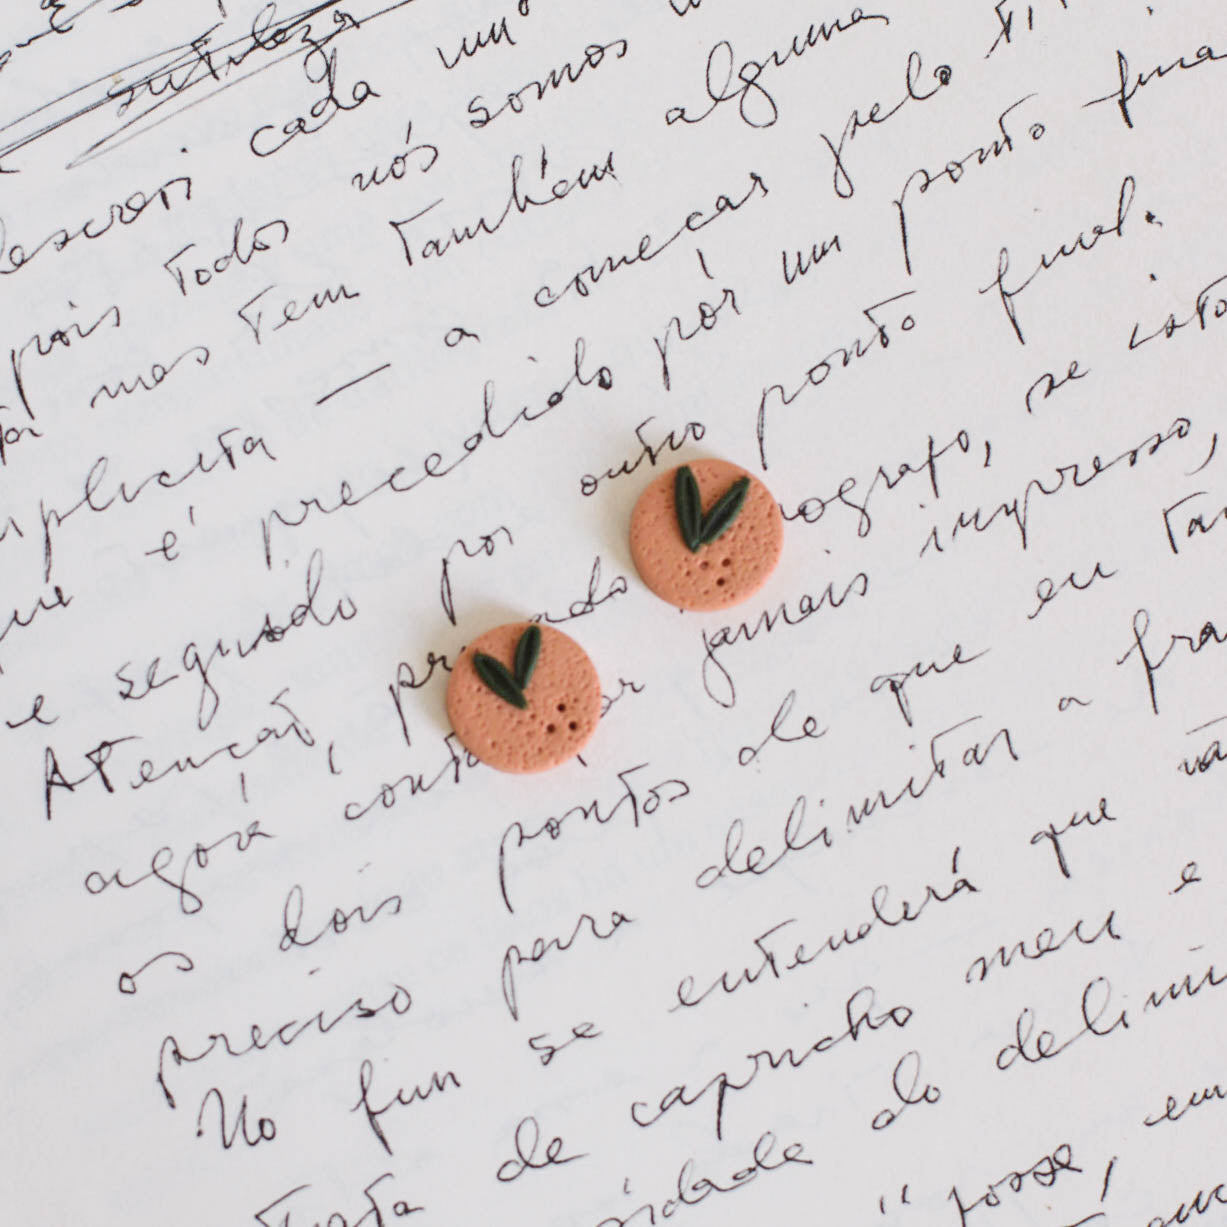 sutileza
descrevi. cada um
pois todos nós somos
mas tem também alguma
mplicita — a começar pelo ti
que é precedido por um ponto fina
e seguido por outro ponto final.
Atenção, pr ado nografo, se isto
agora, conta ar jamais impresso,
os dois pontos de que eu tan
preciso para delimitar a fra
No fim se entenderá que nã
trata de capricho meu e
sidade do delimi
"posse, em